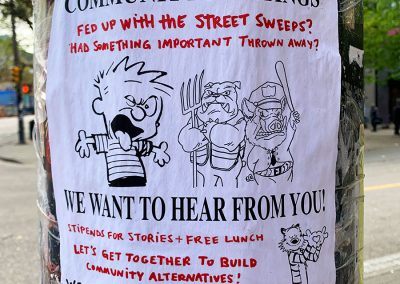 FED UP WITH THE STREET SWEEPS?
HAD SOMETHING IMPORTANT THROWN AWAY?
WE WANT TO HEAR FROM YOU!
STIPENDS FOR STORIES + FREE LUNCH
LET'S GET TOGETHER TO BUILD
COMMUNITY ALTERNATIVES!